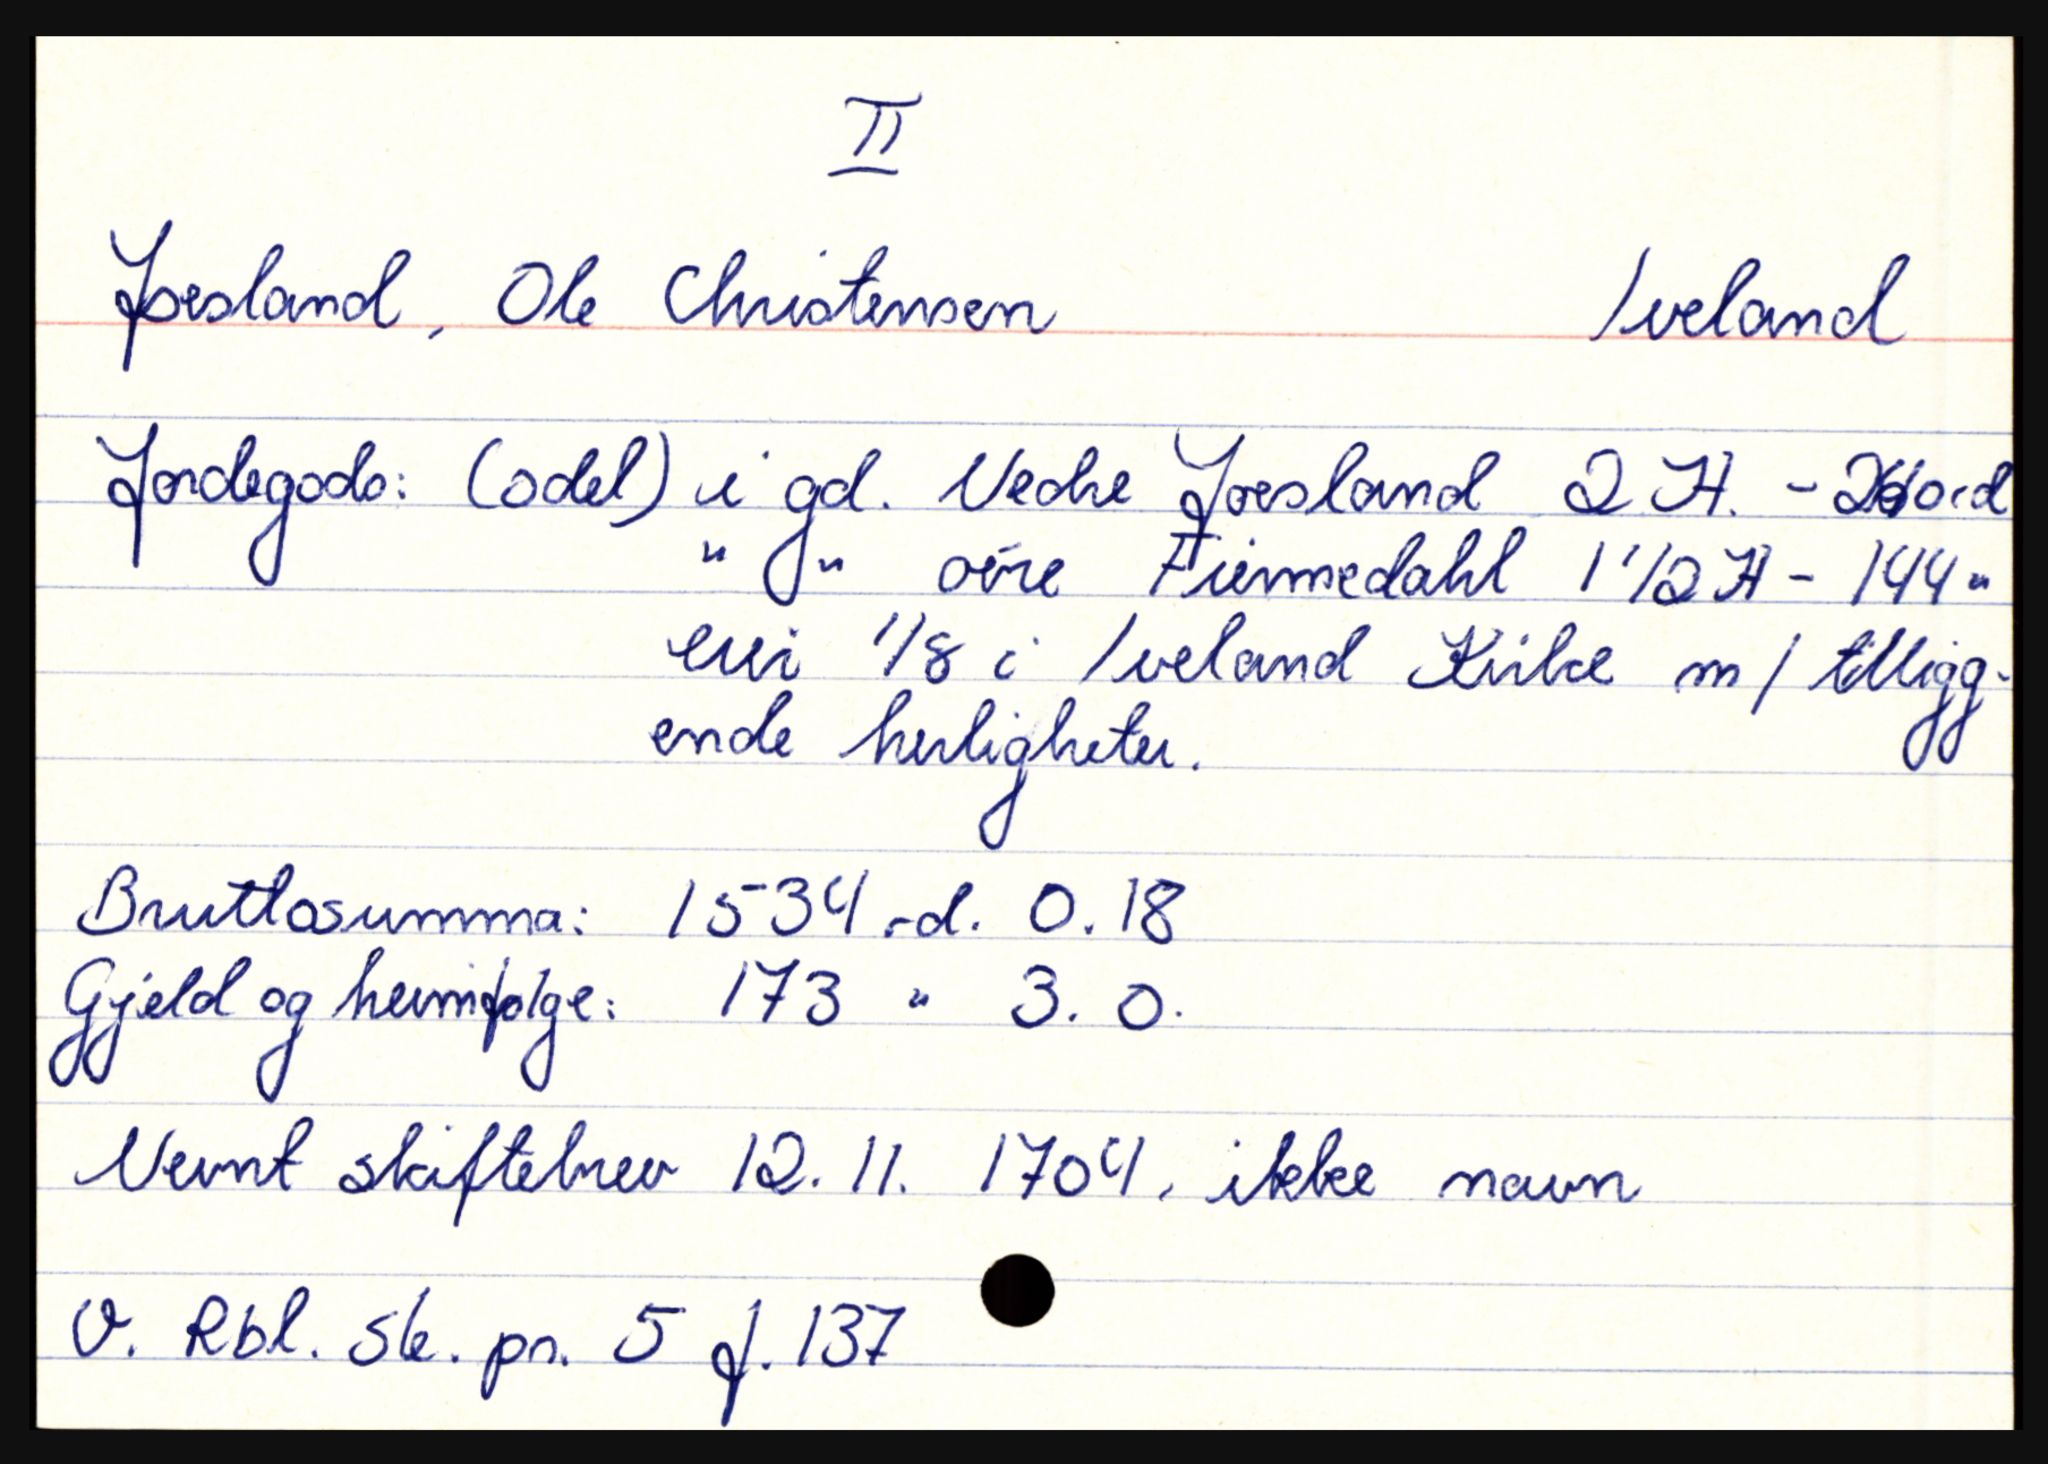 II
Joesland, Ole Christensen Iveland
Jordegods: (odel) i gd. Nedre Joesland 2 H. - rd
" g " oére Fiermedahl 1 1/2 H - 144 "
eiri 1/8 i Iveland Kirke m/ tilligg-
ende herligheter.
Bruttosumma: 1534 rd. 0.18
Gjeld og heimfølge: 173 " 3. 0.
Nevnt skiftebrev 12. 11. 1704, ikke navn
V. Rbl. sk. pr. 5 f. 137